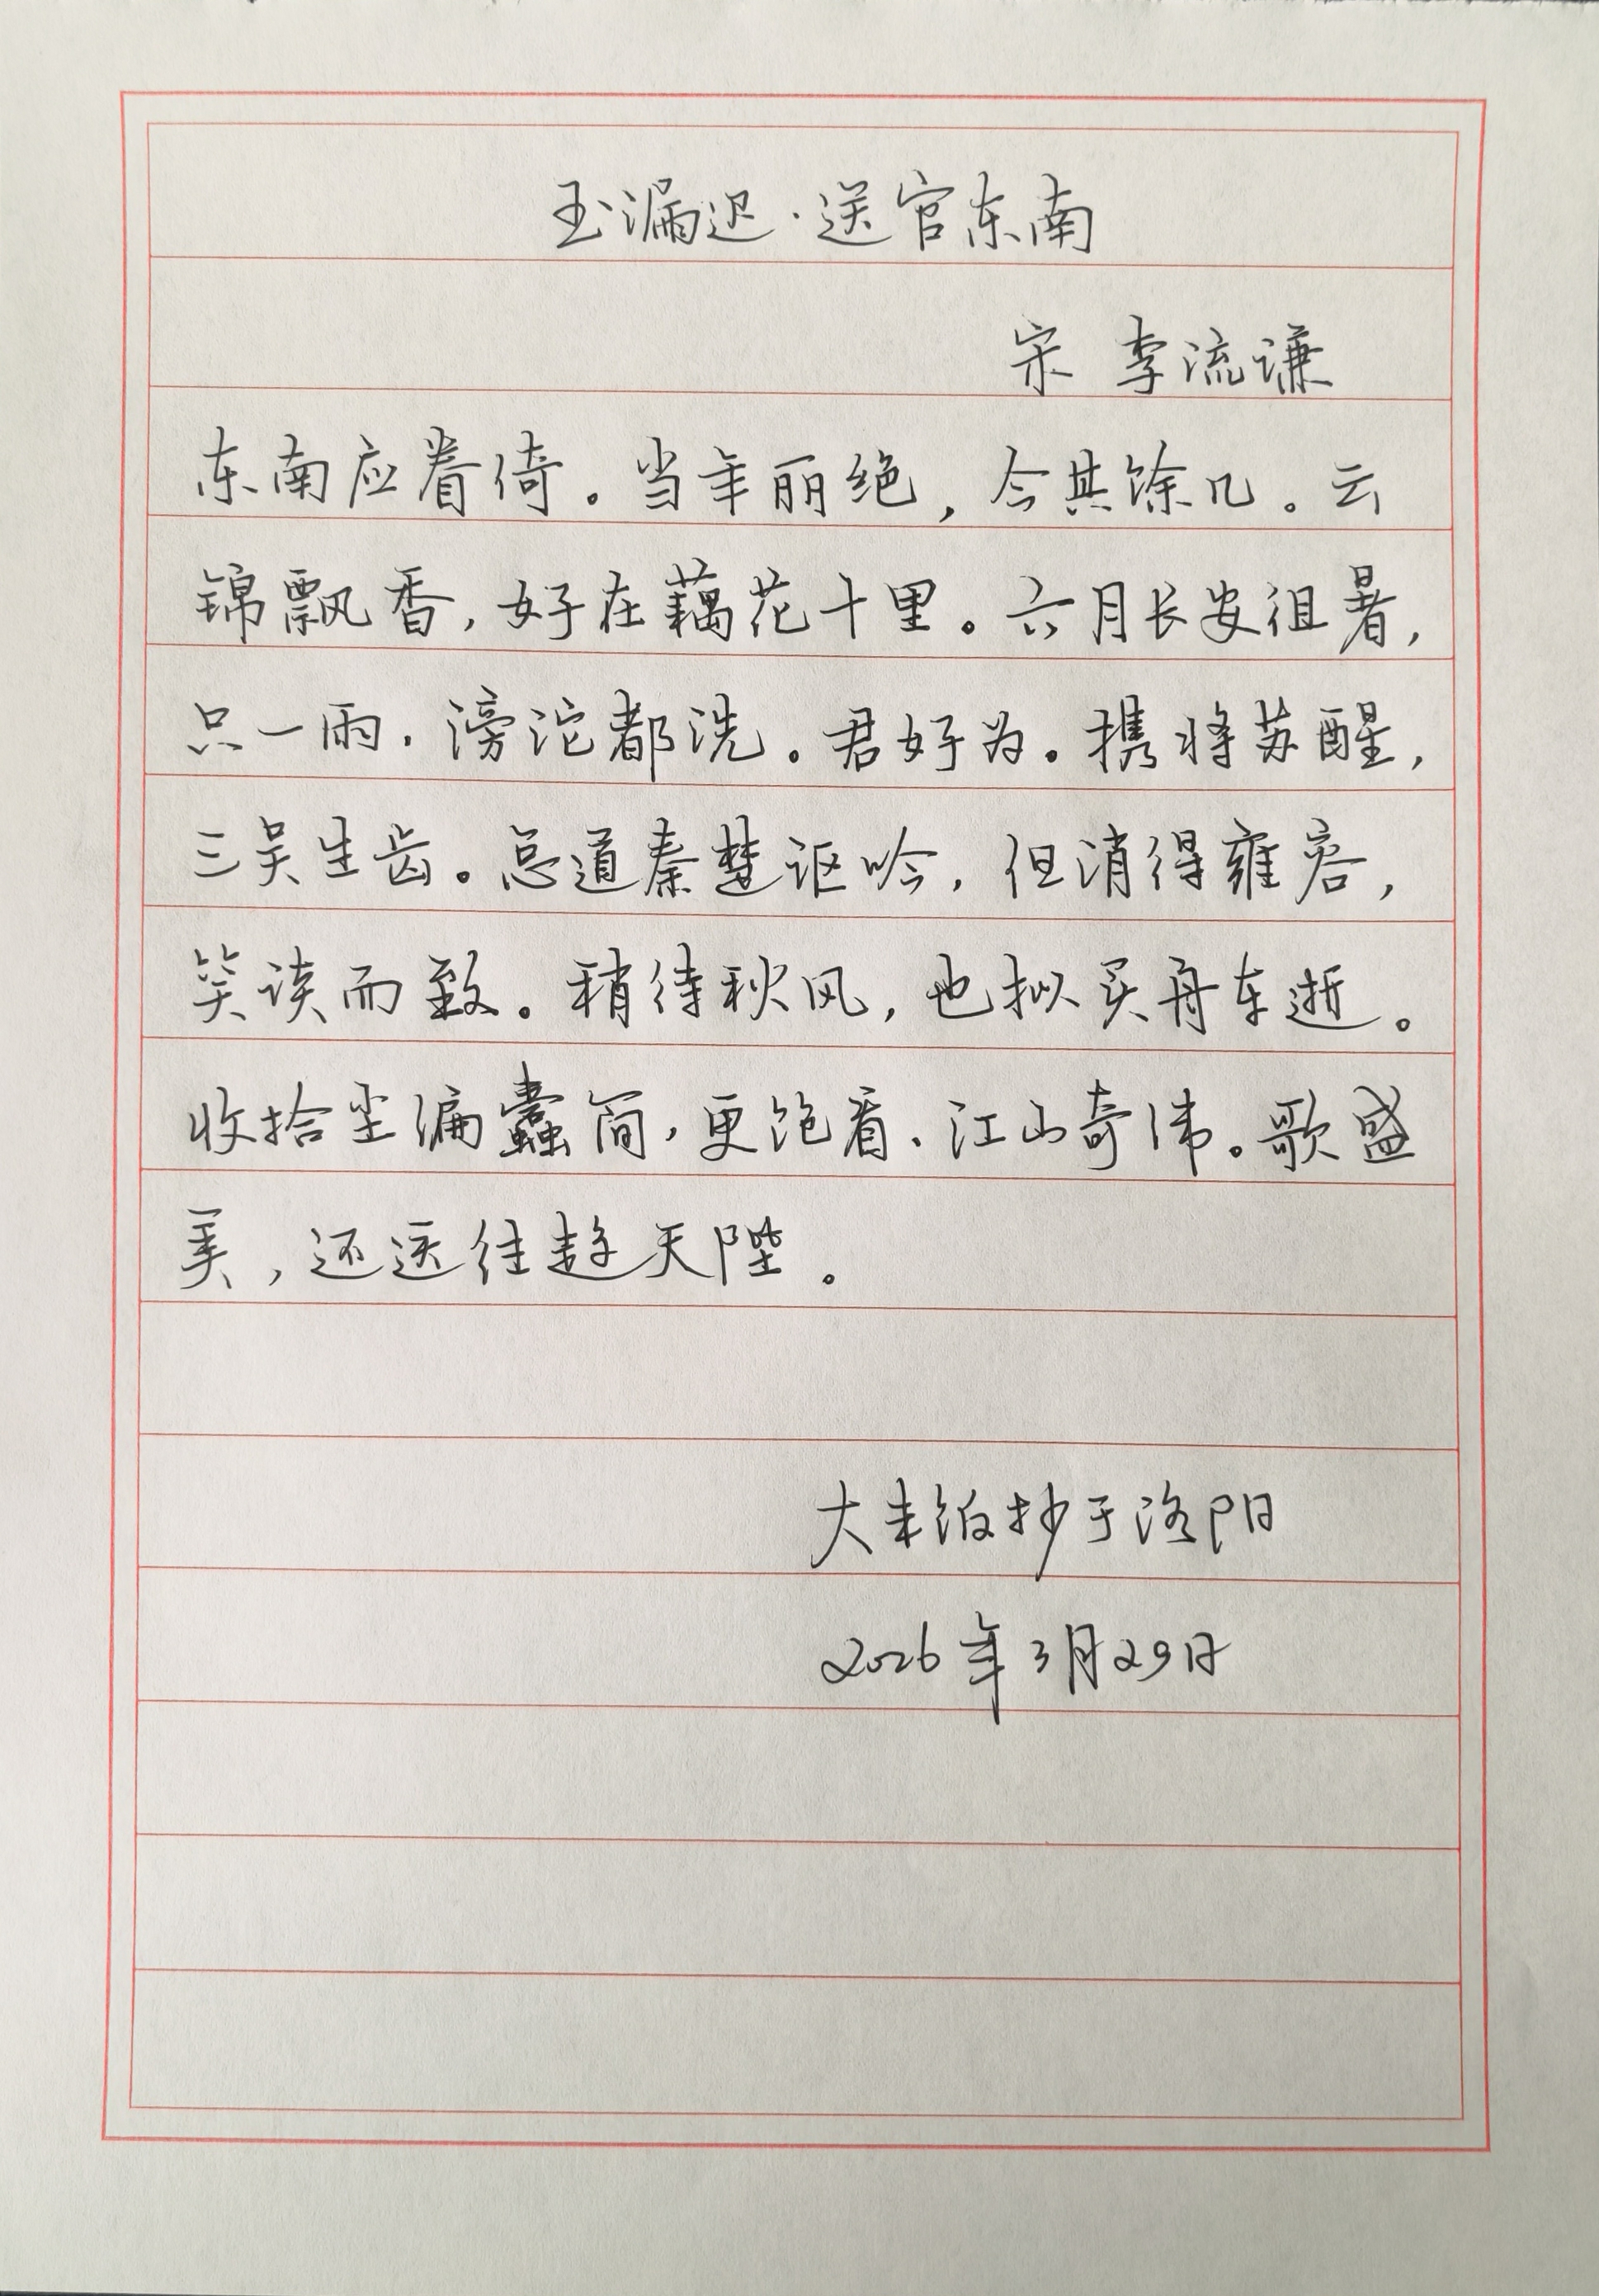 玉漏迟·送官东南
宋 李流谦
东南应眷倚。当年丽绝，今其馀几。云
锦飘香，好在藕花十里。六月长安徂暑，
只一雨、滂沱都洗。君好为。携将苏醒，
三吴生齿。总道秦楚讴吟，但消得雍容，
笑谈而致。稍待秋风，也拟买舟东逝。
收拾尘编蠹简，更饱看、江山奇伟。歌盛
美，还送往趋天陛。
大丰饭抄于洛阳
2026年3月29日